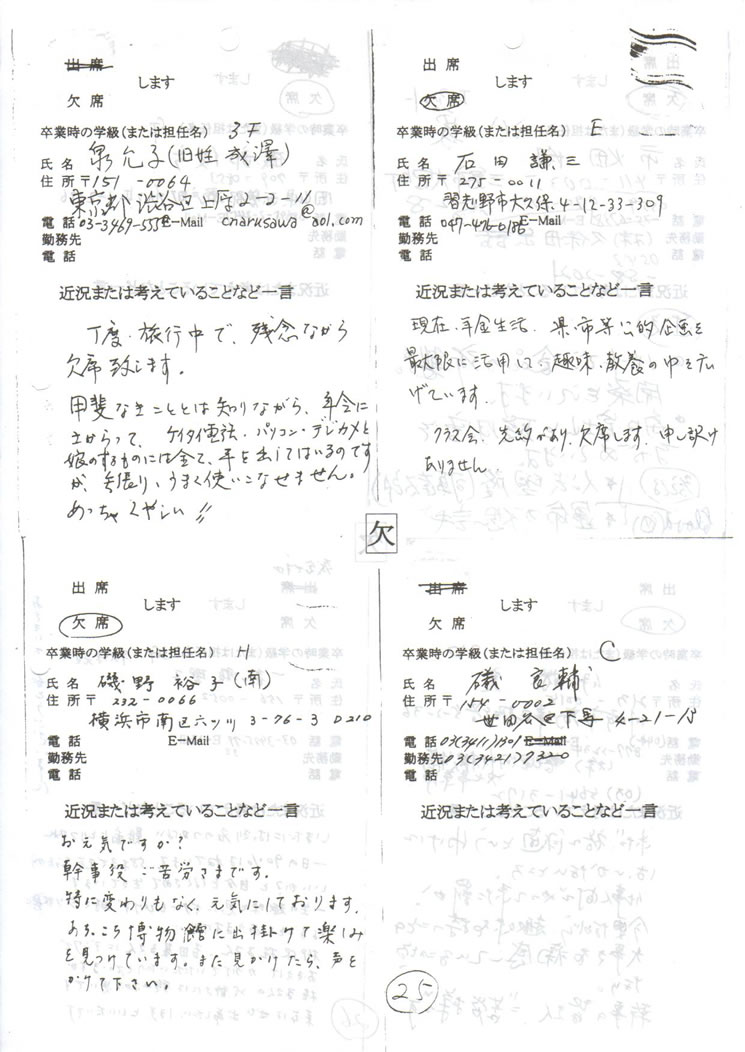 出席
します
欠席
卒業時の学級(または担任名) 3F
氏名 泉允子(旧姓 成澤)
住所〒151-0064
東京都渋谷区上原2-2-11
電話 03-3469-555 E-Mail cnarksawa@aol.com
勤務先
電話
近況または考えていることなど一言
丁度、旅行中で、残念ながら
欠席致します。
甲斐なきこととは知りながら、年令に
さからって、ケイタイ電話・パソコン・デジカメと
娘のするものには全て、手を出してはいるのです
が、矢張り、うまく使いこなせません。
めっちゃくやしい!!
出席
します
欠席
卒業時の学級(または担任名) E
氏名 石田謙三
住所〒275-0011
習志野市大久保4-12-33-309
電話 047-476-0180 E-Mail
勤務先
電話
近況または考えていることなど一言
現在、年金生活、県・市等公的企画を
最大限に活用して、趣味・教養の巾を広
げています。
クラス会、先約があり、欠席します。申し訳け
ありません。
欠
出席
します
欠席
卒業時の学級(または担任名) H
氏名 磯野裕子(南)
住所〒232-0066
横浜市南区六ツ川 3-76-3 D210
電話 E-Mail
勤務先
電話
近況または考えていることなど一言
お元気ですか?
幹事役ご苦労さまです。
特に変わりもなく、元気にしております。
あちこち博物館に出掛けて楽しみ
を見つけています。また見かけたら、声を
かけて下さい。
出席
します
欠席
卒業時の学級(または担任名) C
氏名 磯 良輔
住所〒154-0002
世田谷区下馬 4-21-15
電話 03(3411)1301 E-Mail
勤務先 03(3421)7320
電話
近況または考えていることなど一言
25